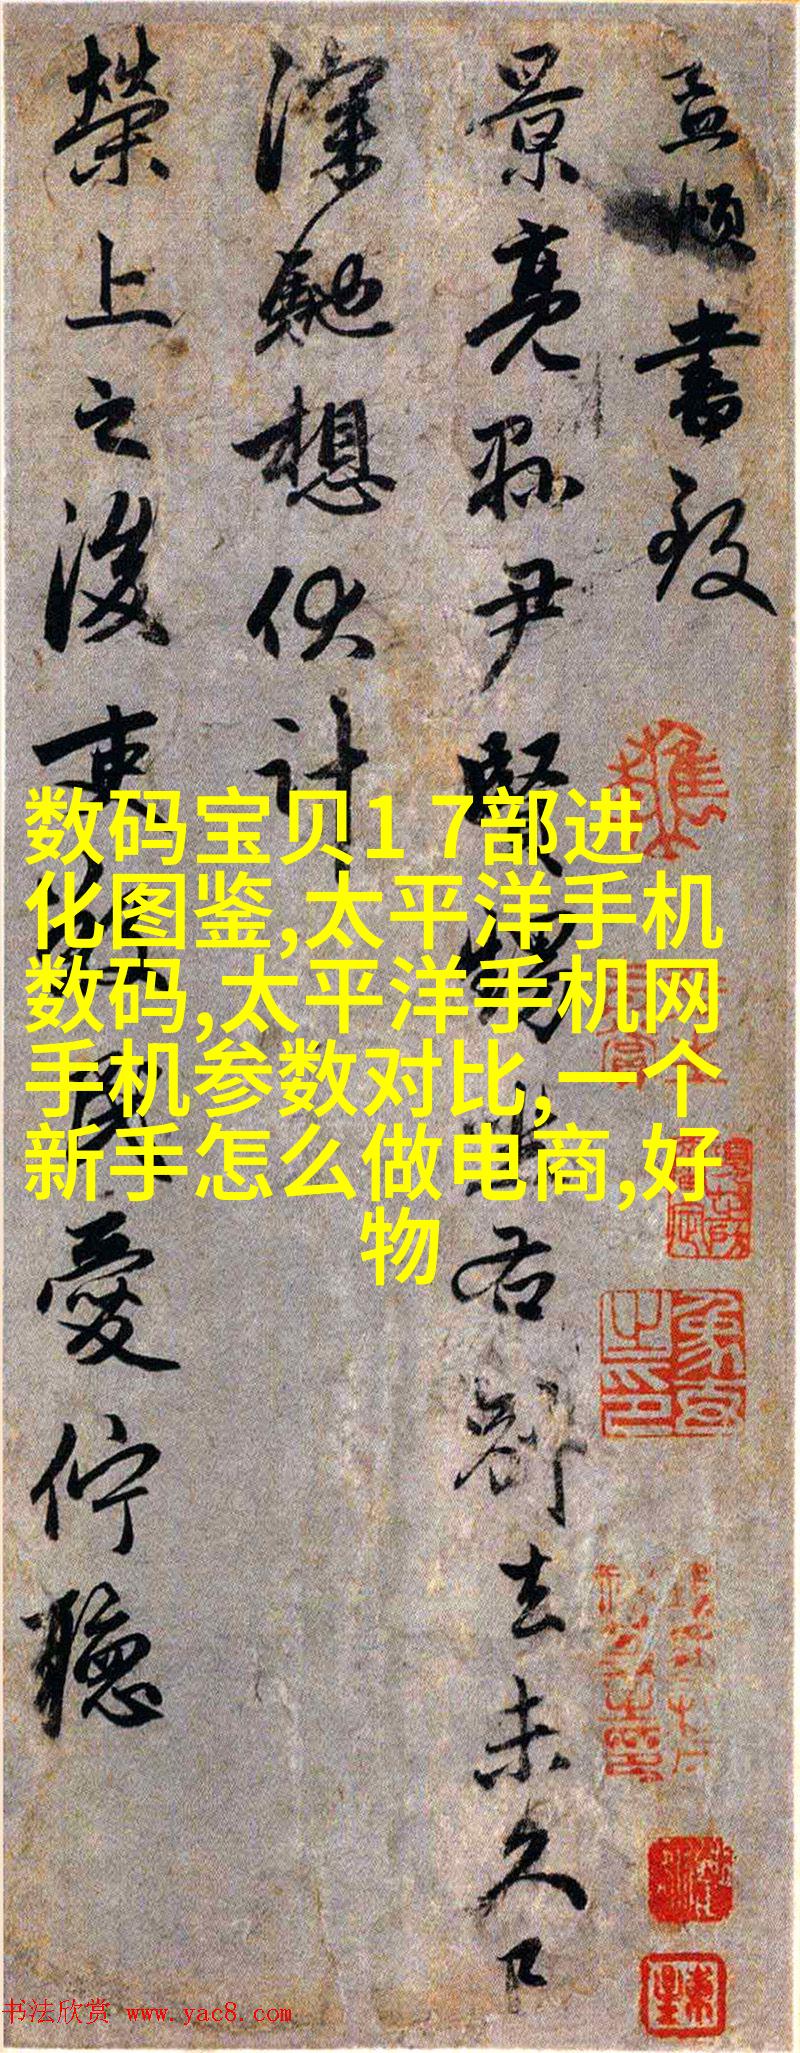 孟頫書致
景亮縣尹賢弟
右別去未久下
深馳想伏計
榮上之後吏
民愛佇聽
数码宝贝1 7部进
化图鉴,太平洋手机
数码,太平洋手机网
手机参数对比,一个
新手怎么做电商,好
物
书法欣赏 www.yac8.com